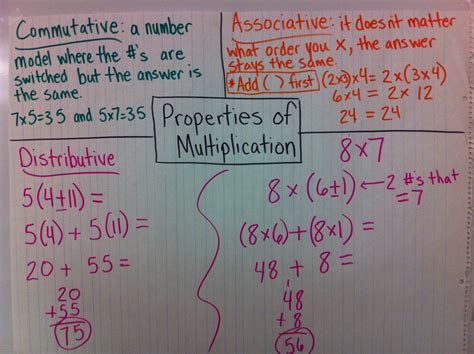 Commutative: a number
model where the #'s are
switched but the answer is
the same.
7x5=35 and 5x7=35
Associative: it doesn't matter
what order you x, the answer
stays the same.
*Add ( ) first (2x3)x4 = 2x(3x4)
6x4 = 2x 12
24 = 24
Properties of
Multiplication
Distributive
5(4+11) =
5(4) + 5(11) =
20 + 55 =
20
+55
75
8x7
8 x (6+1) ← 2 #'s that
=7
(8x6)+(8x1) =
48 + 8 =
1
48
+8
56